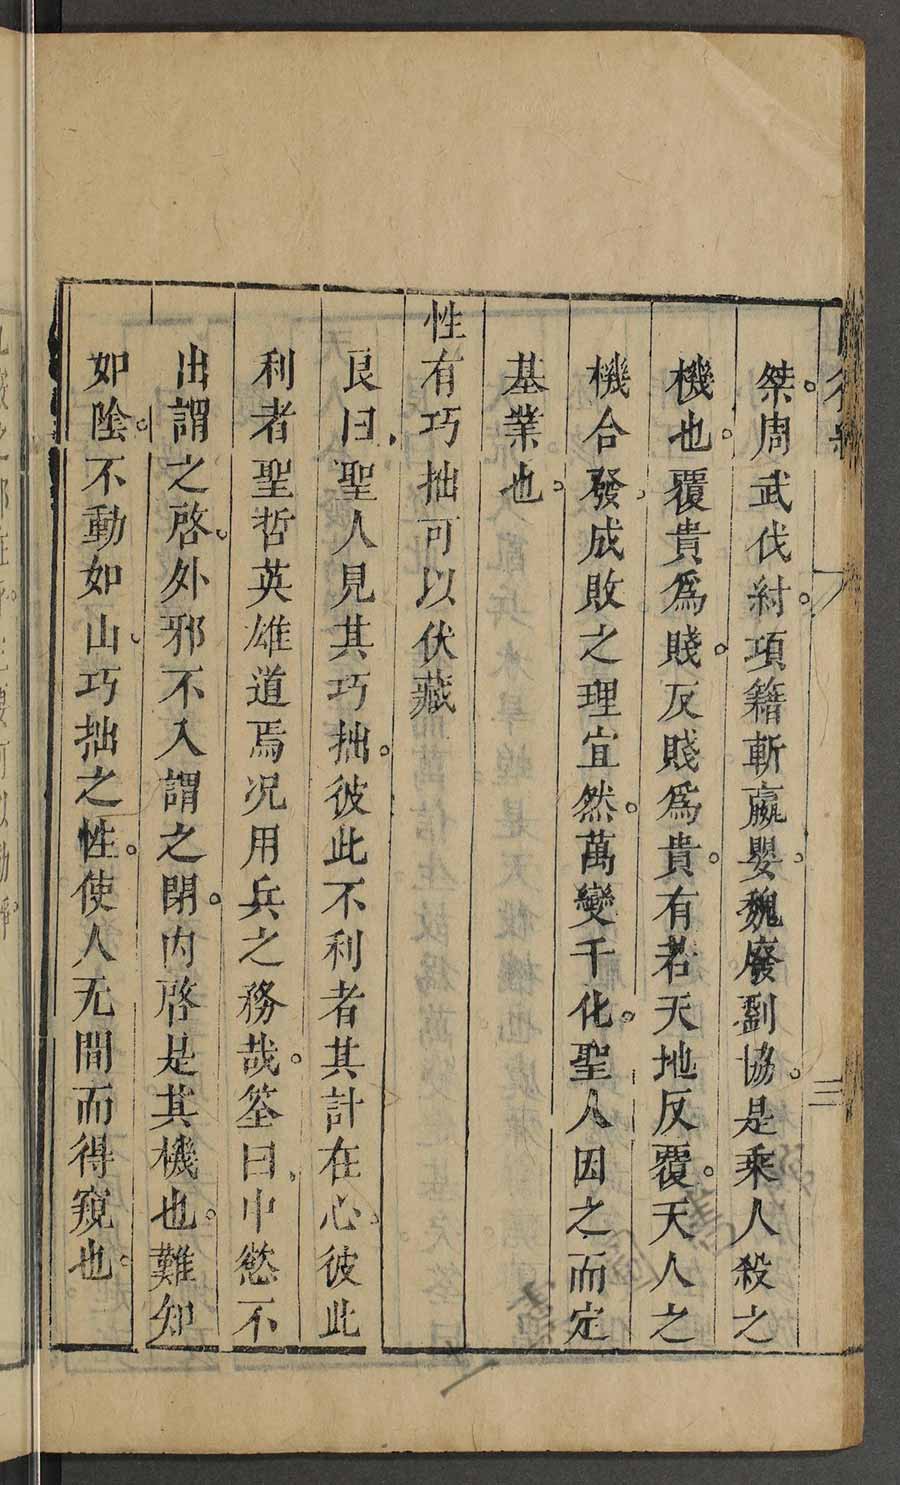 桀。周武伐紂。項籍斬嬴嬰。魏廢劉協。是乘人殺之
機也。覆貴爲賤。反賤爲貴。有若天地反覆。天人之
機合發。成敗之理宜然。萬變千化。聖人因之而定
基業也。
性有巧拙可以伏藏
良曰、聖人見其巧拙。彼此不利者其計在心。彼此
利者聖哲英雄道焉況用兵之務哉。筌曰、中慾不
出謂之啓。外邪不入謂之閉。内啓是其機也。難知
如陰。不動如山。巧拙之性。使人无間而得窺也。
三